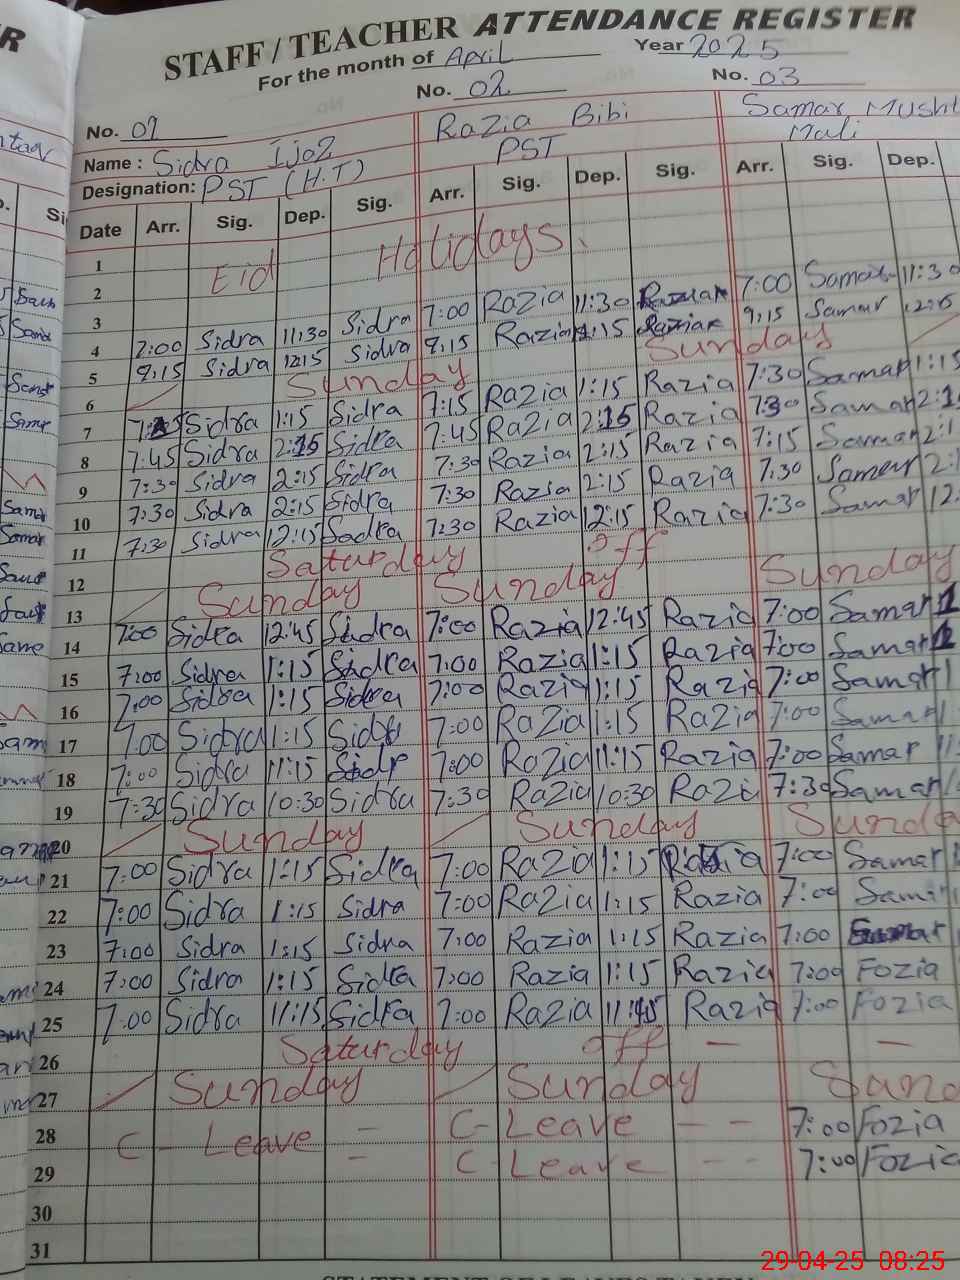 STAFF / TEACHER ATTENDANCE REGISTER
For the month of April Year 2025
No. 01 No. 02 No. 03
Name : Sidra Ijaz Razia Bibi Samar Musht
Designation: PST (H.T) PST Mali
Date Arr. Sig. Dep. Sig. Arr. Sig. Dep. Sig. Arr. Sig. Dep.
1
2 Eid Holidays.
3
4 7:00 Sidra 11:30 Sidra 7:00 Razia 11:30 7:00 Samar 11:30
5 9:15 Sidra 12:15 Sidra 9:15 Razia 9:15 Samar 12:15
6 Sunday Sunday
7 Sidra 1:15 Sidra 7:15 Razia 1:15 Razia 7:30 Samar 1:15
8 7:45 Sidra 2:15 Sidra 7:45 Razia 2:15 Razia 7:30 Samar 2:1
9 7:30 Sidra 2:15 Sidra 7:30 Razia 2:15 Razia 7:15 Samar 2:1
10 7:30 Sidra 2:15 Sidra 7:30 Razia 2:15 Razia 7:30 Samar 2:
11 7:30 Sidra 12:15 Sadra 7:30 Razia 12:15 Razia 7:30 Samar 12.
12 Saturday off
13 Sunday Sunday Sunday
14 7:00 Sidra 12:45 Sidra 7:00 Razia 12:45 Razia 7:00 Samar 1
15 7:00 Sidra 1:15 Sidra 7:00 Razia 1:15 Razia 7:00 Samar 1
16 7:00 Sidra 1:15 Sidra 7:00 Razia 1:15 Razia 7:00 Samar 1
17 7:00 Sidra 1:15 Sidra 7:00 Razia 1:15 Razia 7:00 Samar 1
18 7:00 Sidra 11:15 Sidr 7:00 Razia 11:15 Razia 7:00 Samar 11:
19 7:30 Sidra 10:30 Sidra 7:30 Razia 10:30 Razi 7:30 Samar 1
20 Sunday Sunday Sunda
21 7:00 Sidra 1:15 Sidra 7:00 Razia 1:15 Razia 7:00 Samar
22 7:00 Sidra 1:15 Sidra 7:00 Razia 1:15 Razia 7:00 Samar
23 7:00 Sidra 1:15 Sidra 7:00 Razia 1:15 Razia 7:00 Samar
24 7:00 Sidra 1:15 Sidra 7:00 Razia 1:15 Razia 7:00 Fozia
25 7:00 Sidra 11:15 Sidra 7:00 Razia 11:45 Razia 7:00 Fozia
26 Saturday off - -
27 Sunday Sunday Sund
28 C - Leave - C - Leave - - 7:00 Fozia
29 - C - Leave - - 7:00 Fozia
30
31
29-04-25 08:25